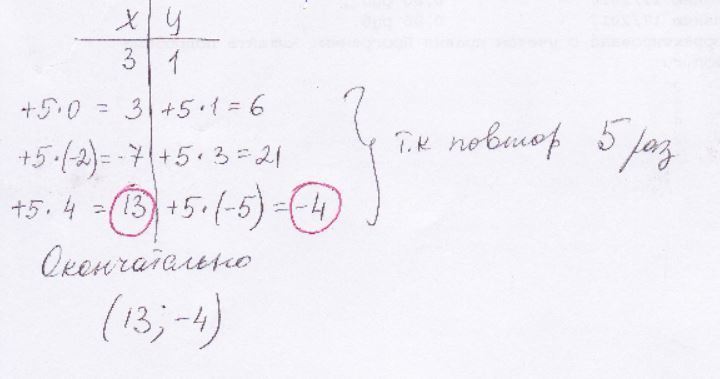 x y
3 1
+5·0 = 3 +5·1 = 6
+5·(-2) = -7 +5·3 = 21
+5·4 = 13 +5·(-5) = -4
т.к повтор 5 раз
Окончательно
(13; -4)